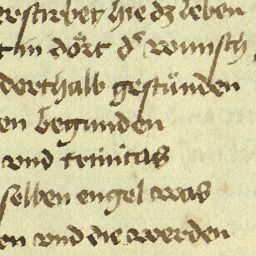 erstirbet hie dz leben
t in dört dˢ wunsch
derthalb gestünden
en begunden
vnd trinitas
selben engel was
en vnd die werden